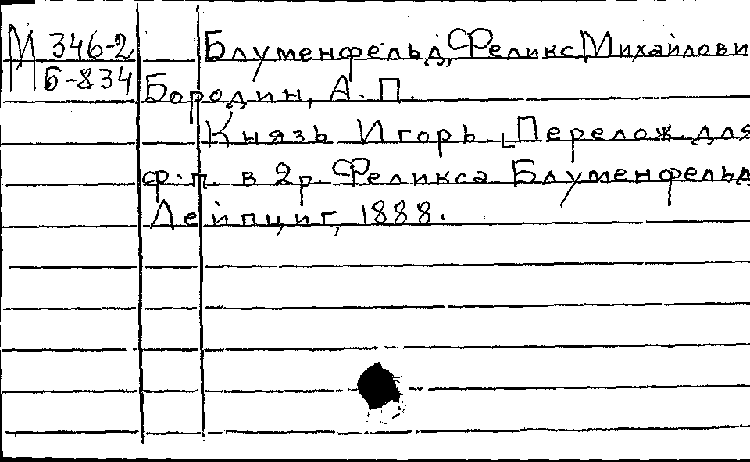 М 346-2 Блуменфельд, Феликс Михайлови
Б-834 Бородин, А. П.
Князь Игорь. Перелож. для
ф.-п. в 2 р. Феликса Блуменфельд
Лейпциг, 1888.